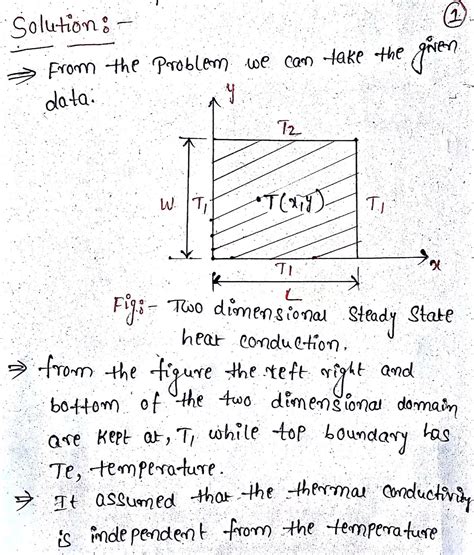 1
Solution:-
⇒ From the Problem we can take the given
data.
y
T2
W T1 •T(x,y) T1
T1
x
L
Fig:- Two dimensional Steady State
heat conduction.
⇒ from the figure the left right and
bottom of the two dimensional domain
are kept at, T1 while top boundary has
Te, temperature.
⇒ It assumed that the thermal conductivity
is independent from the temperature